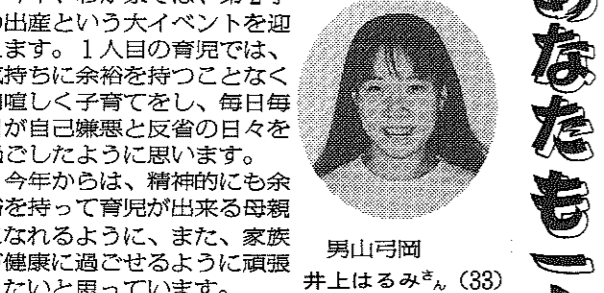 あなたも一
の出産という大イベントを迎
えます。1人目の育児では、
気持ちに余裕を持つことなく
喧しく子育てをし、毎日毎
日が自己嫌悪と反省の日々を
過ごしたように思います。
今年からは、精神的にも余
裕を持って育児が出来る母親
になれるように、また、家族
が健康に過ごせるように頑張
りたいと思っています。
男山弓岡
井上はるみさん（33）